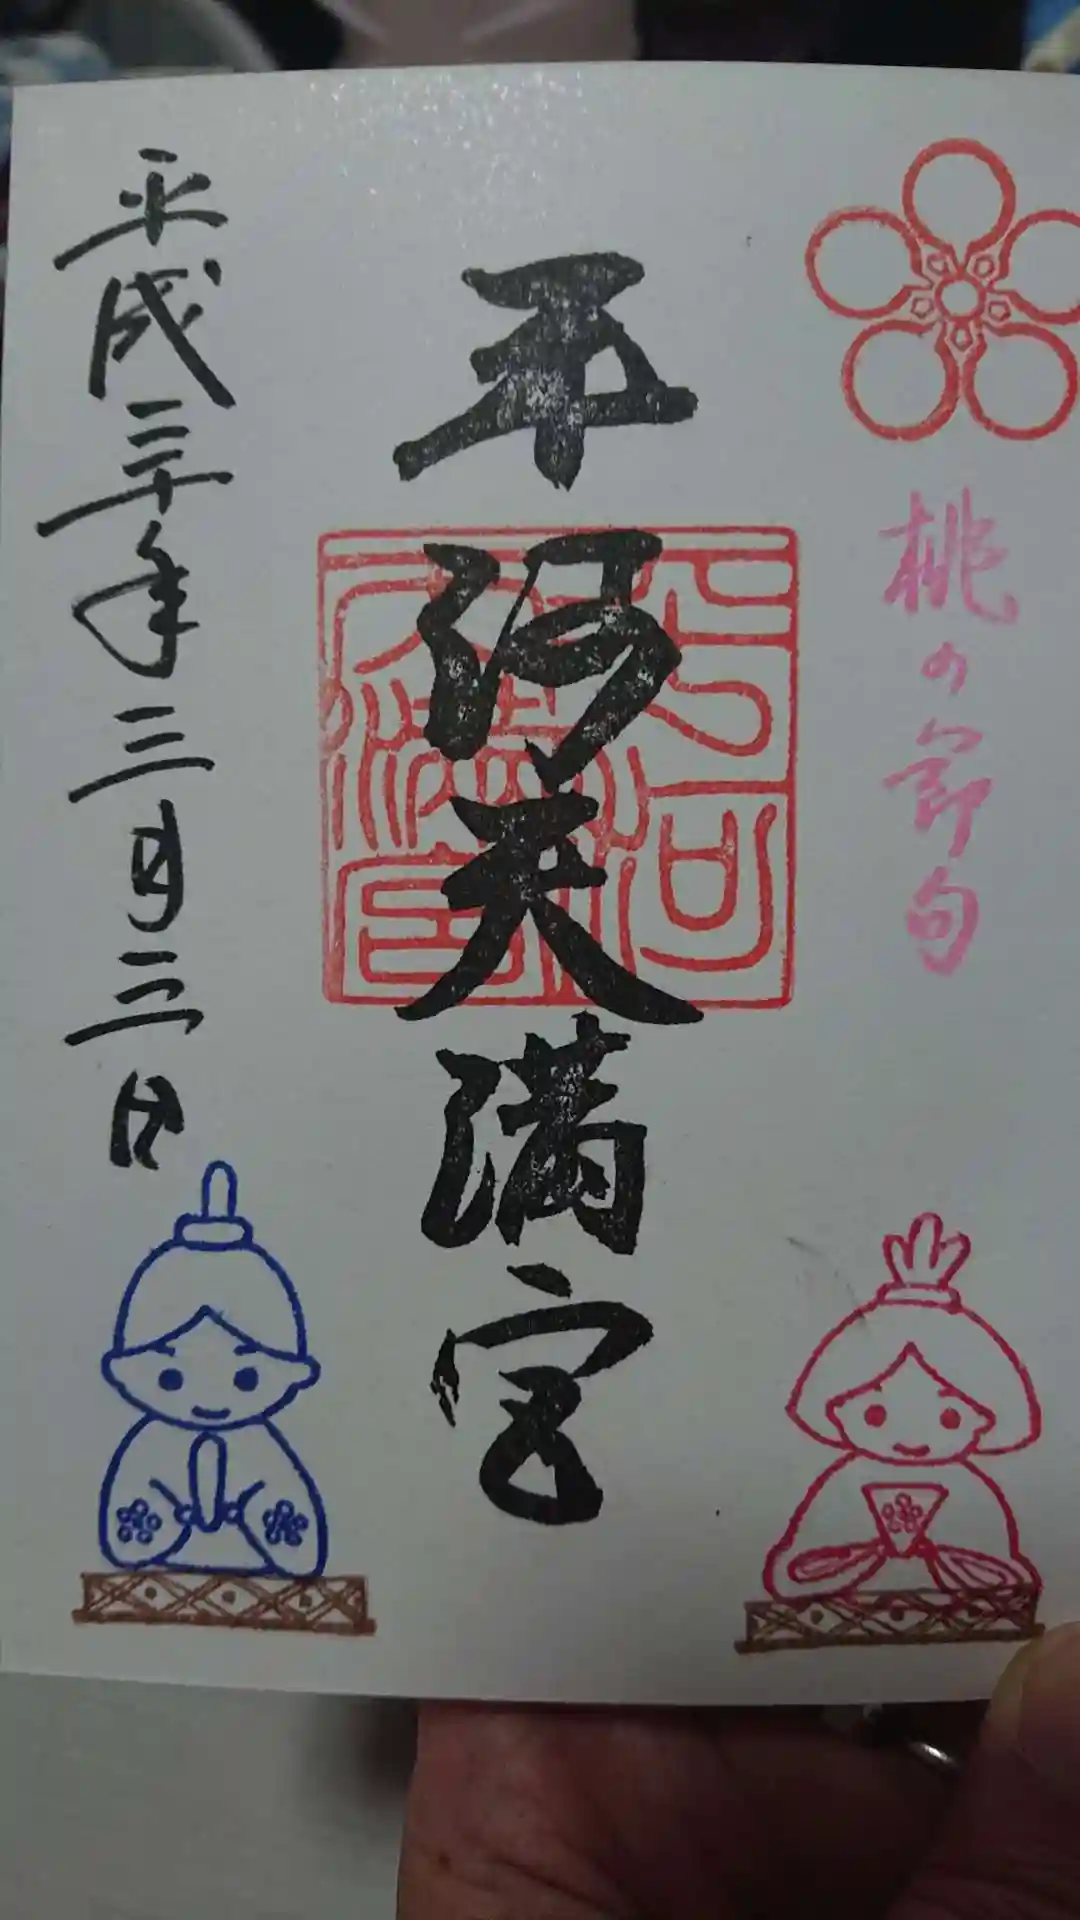 桃の節句
平河天満宮
平河天満宮
平成三十年三月三日